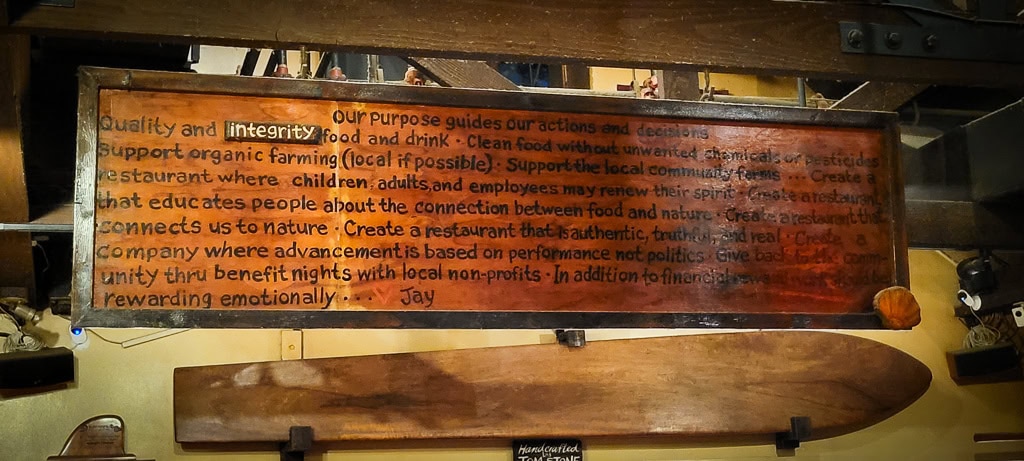 Our purpose guides our actions and decisions
Quality and integrity food and drink · Clean food without unwanted chemicals or pesticides
Support organic farming (local if possible) · Support the local community farms ... Create a
restaurant where children, adults, and employees may renew their spirit · Create a restaurant
that educates people about the connection between food and nature · Create a restaurant that
connects us to nature · Create a restaurant that is authentic, truthful, and real · Create a
company where advancement is based on performance not politics · Give back to the comm-
unity thru benefit nights with local non-profits · In addition to financial
rewarding emotionally ... Jay
Handcrafted
by
TOM STONE